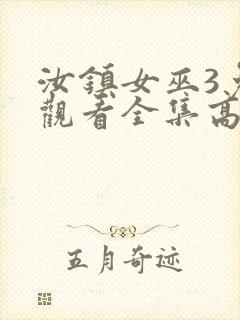 汝鎮女巫3
觀看全集高
五月奇迹